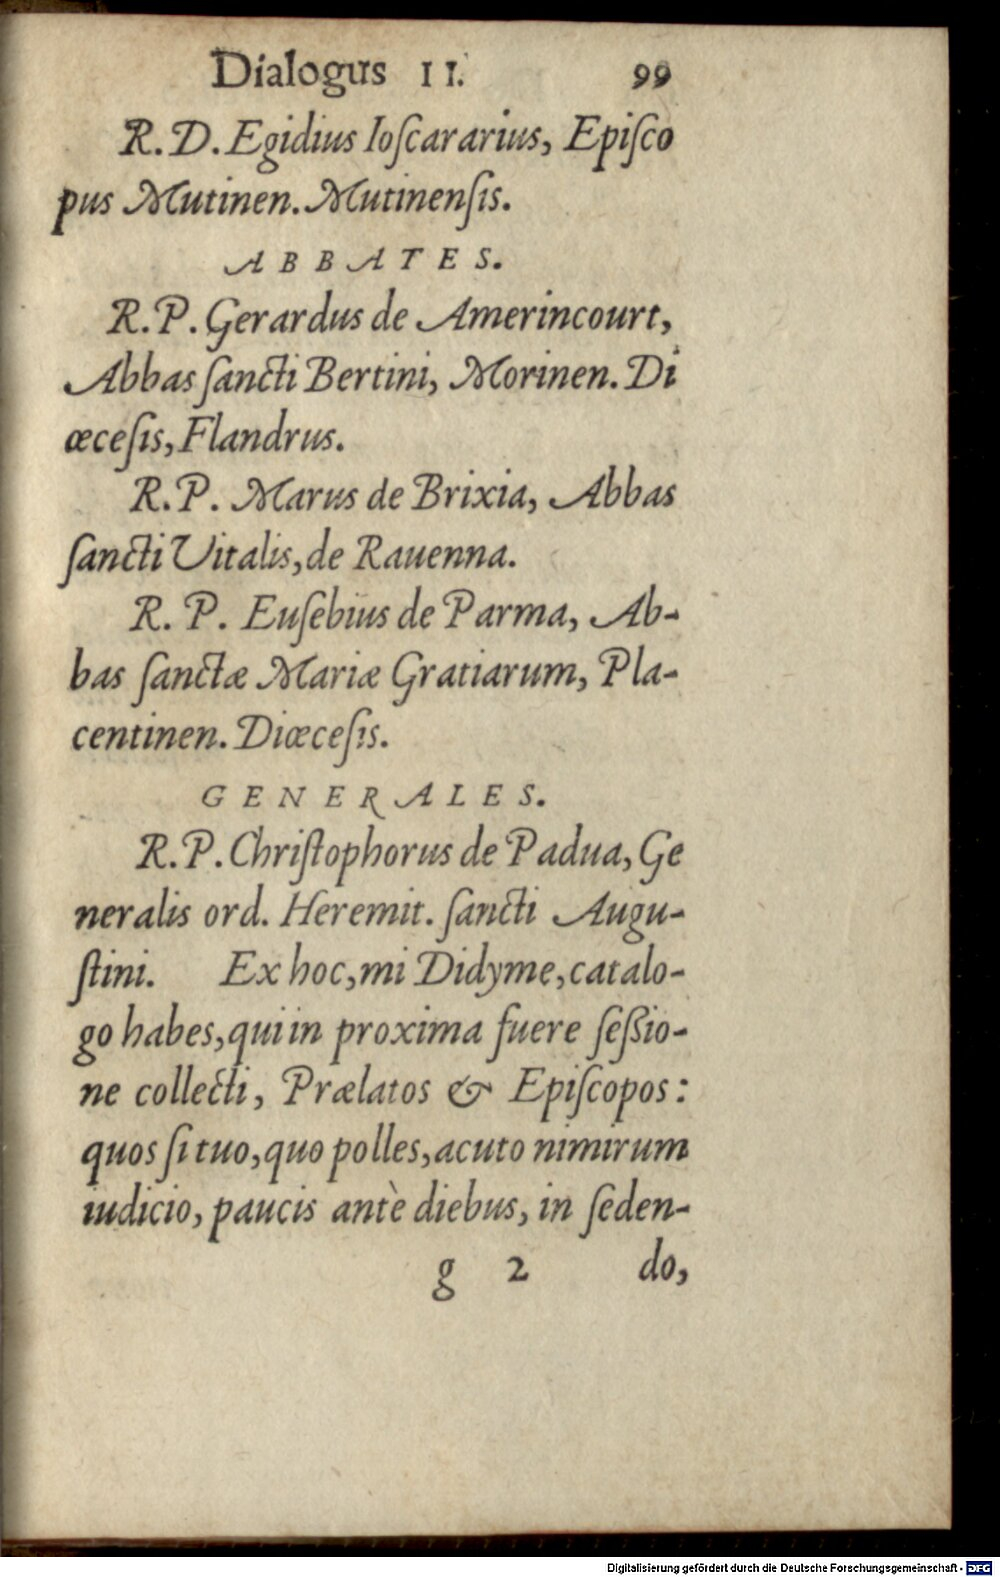 Dialogus II. 99
R.D. Egidius Ioſcararius, Epiſco
pus Mutinen. Mutinenſis.
ABBATES.
R.P. Gerardus de Amerincourt,
Abbas ſancti Bertini, Morinen. Di
œceſis, Flandrus.
R.P. Marus de Brixia, Abbas
ſancti Vitalis, de Rauenna.
R. P. Euſebius de Parma, Ab-
bas ſanctæ Mariæ Gratiarum, Pla-
centinen. Diœceſis.
GENERALES.
R.P. Chriſtophorus de Padua, Ge
neralis ord. Heremit. ſancti Augu-
ſtini. Ex hoc, mi Didyme, catalo-
go habes, qui in proxima fuere ſeßio-
ne collecti, Prælatos & Epiſcopos:
quos ſi tuo, quo polles, acuto nimirum
iudicio, paucis antè diebus, in ſeden-
g 2 do,
Digitalisierung gefördert durch die Deutsche Forschungsgemeinschaft - DFG